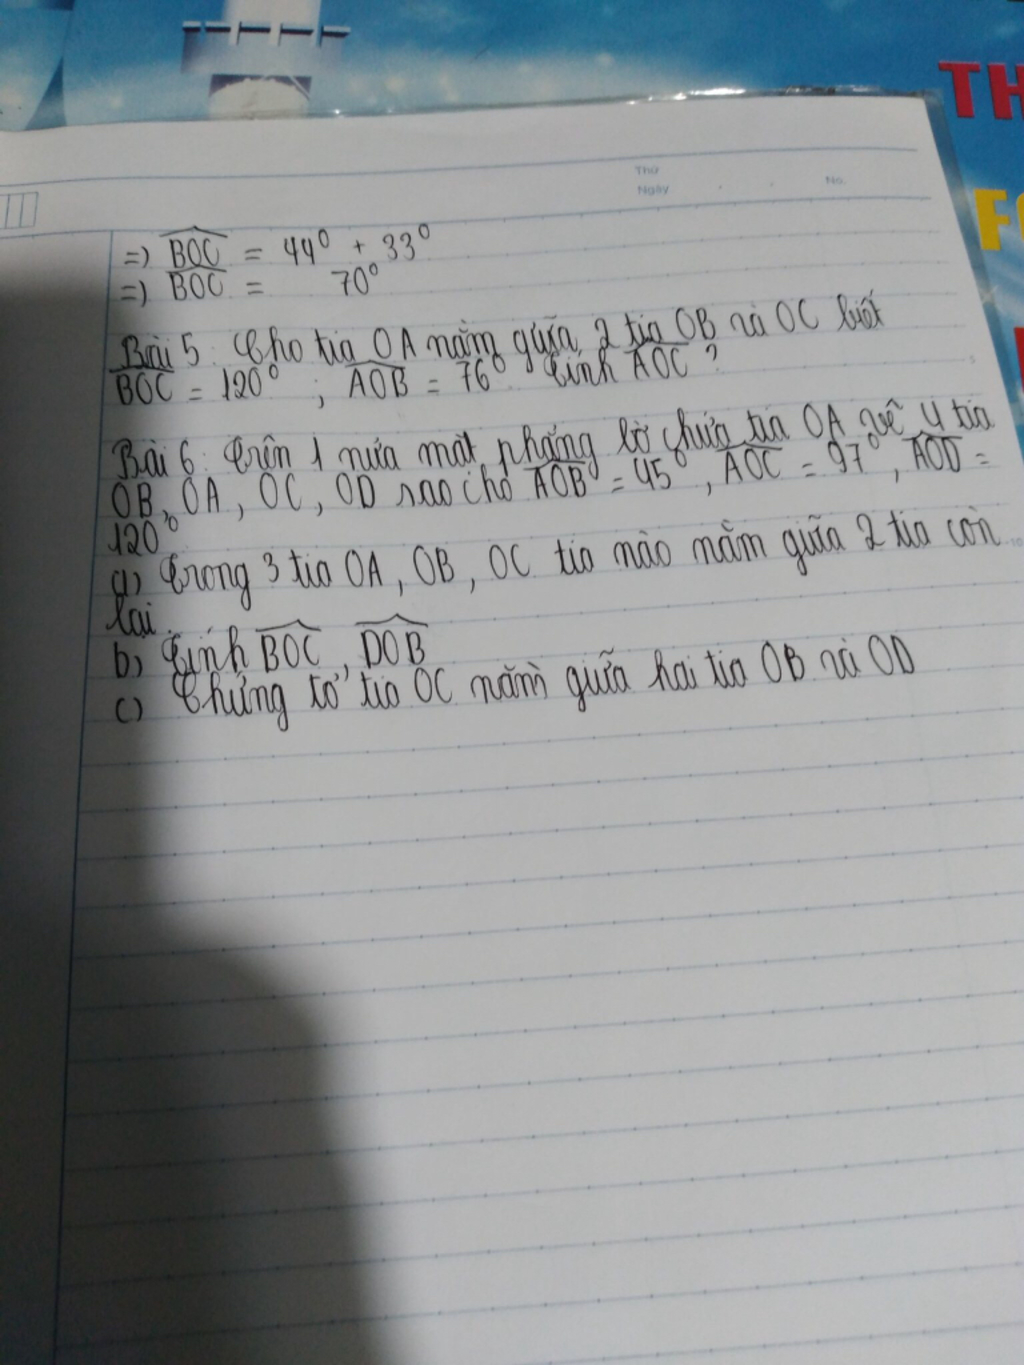 TH
F
Thứ
Ngày
No.
=) BOC = 44⁰ + 33⁰
=) BOC = 70⁰
Bài 5: Cho tia OA nằm giữa 2 tia OB và OC biết
BOC = 120⁰ ; AOB = 76⁰ Tính AOC ?
Bài 6: Trên 1 nửa mặt phẳng bờ chứa tia OA vẽ 4 tia
OB, OA, OC, OD sao cho AOB = 45⁰, AOC = 97⁰, AOD =
120⁰
a) Trong 3 tia OA, OB, OC tia nào nằm giữa 2 tia còn
lại.
b) Tính BOC, DOB
c) Chứng tỏ tia OC nằm giữa hai tia OB và OD